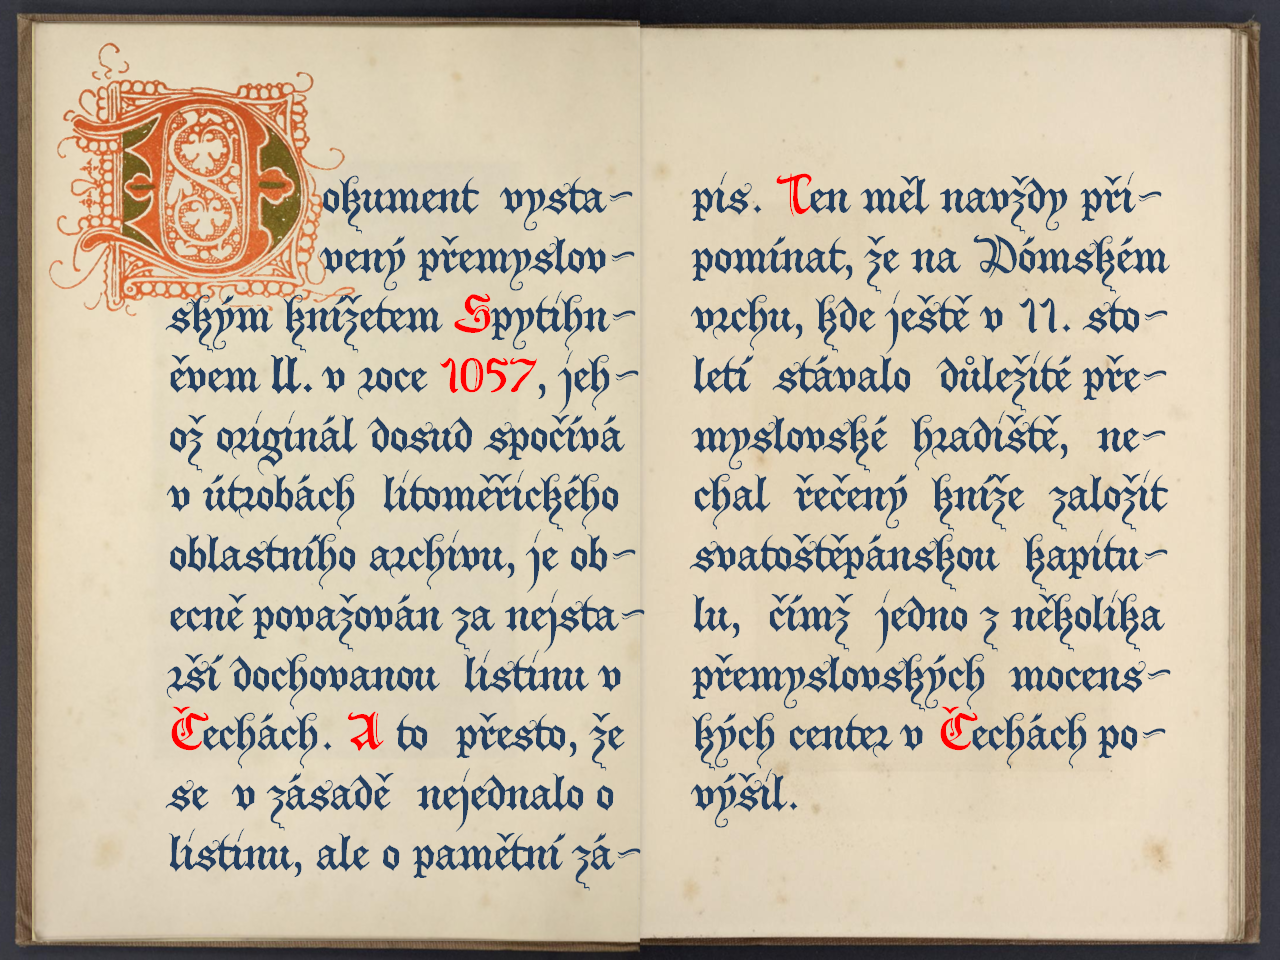 Dokument vysta-
vený přemyslov-
ským knížetem Spytihn-
ěvem II. v roce 1057, jeh-
ož originál dosud spočívá
v útrobách litoměřického
oblastního archivu, je ob-
ecně považován za nejsta-
rší dochovanou listinu v
Čechách. A to přesto, že
se v zásadě nejednalo o
listinu, ale o pamětní zá-
pis. Ten měl navždy při-
pomínat, že na Dómském
vrchu, kde ještě v 11. sto-
letí stávalo důležité pře-
myslovské hradiště, ne-
chal řečený kníže založit
svatoštěpánskou kapitu-
lu, čímž jedno z několika
přemyslovských mocens-
kých center v Čechách po-
výšil.